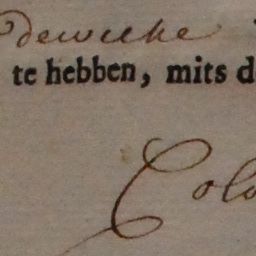 dewelke
te hebben, mits d
Colo